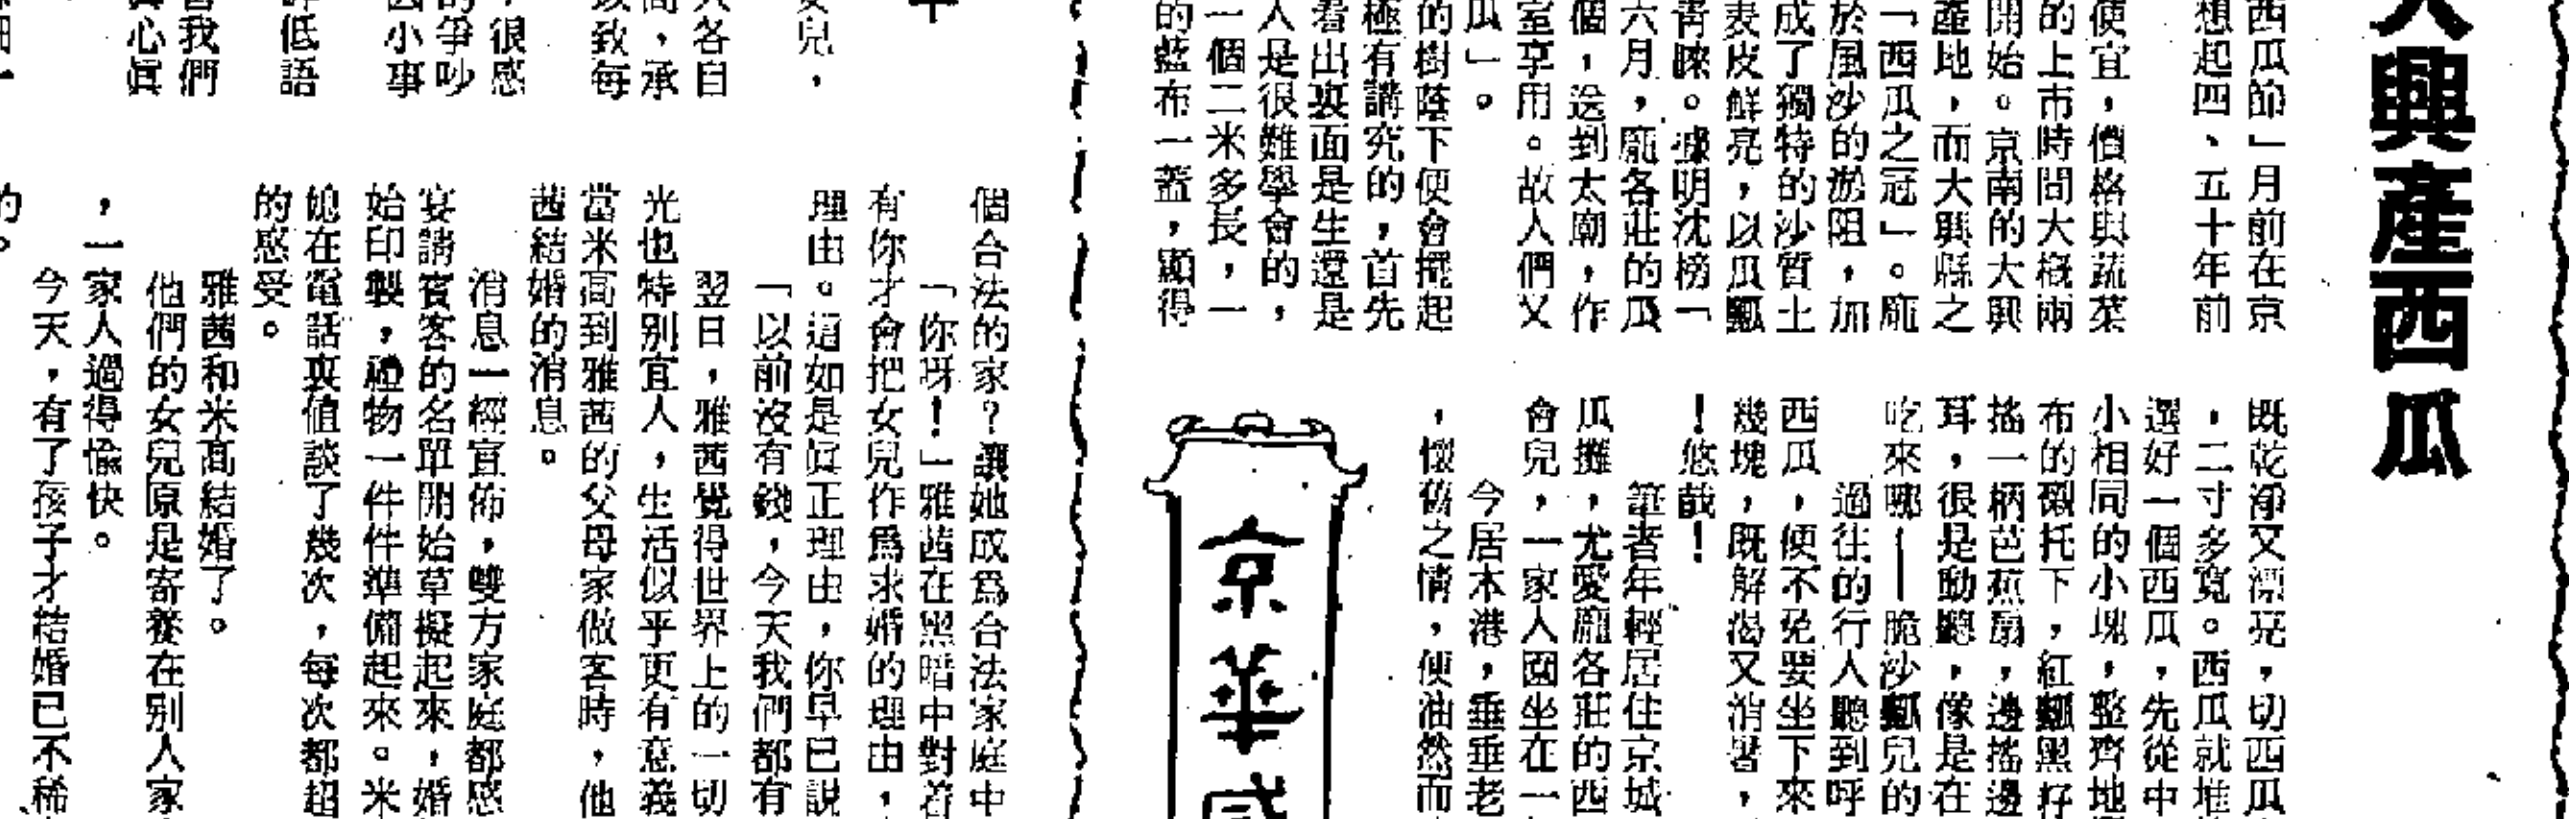 大興產西瓜
西瓜節」月前在京
想起四、五十年前
便宜，價格與蔬菜
的上市時間大概兩
開始。京南的大興
產地，而大興縣之
「西瓜之冠」。龐
於風沙的淤阻，加
成了獨特的沙質土
表皮鮮亮，以瓜瓤
青睞。據明沈榜「
六月，龐各莊的瓜
個，送到太廟，作
室享用。故人們又
瓜」。
的樹蔭下便會擺起
極有講究的，首先
看出裏面是生還是
人是很難學會的，
一個二米多長，一
的藍布一蓋，顯得
既乾淨又漂亮，切西瓜
，二寸多寬。西瓜就堆
選好一個西瓜，先從中
小相同的小塊，整齊地
布的襯托下，紅瓤黑籽
搖一柄芭蕉扇，邊搖邊
耳，很是動聽，像是在
吃來哪——脆沙瓤兒的
過往的行人聽到呼
西瓜，便不免要坐下來
幾塊，既解渴又消暑，
！悠哉！
筆者年輕居住京城
瓜攤，尤愛龐各莊的西
會兒，一家人圍坐在一
今居本港，垂垂老
，懷舊之情，便油然而
京華
女兒，
人各自
間，承
以致每
，很感
的爭吵
因小事
低語
我們
心眞
個合法的家？讓她成爲合法家庭中
「你呀！」雅茜在黑暗中對着
有你才會把女兒作爲求婚的理由，
理由。這如是眞正理由，你早已說
「以前沒有錢，今天我們都有
翌日，雅茜覺得世界上的一切
光也特別宜人，生活似乎更有意義
當米高到雅茜的父母家做客時，他
茜結婚的消息。
消息一經宣佈，雙方家庭都感
宴請賓客的名單開始草擬起來，婚
始印製，禮物一件件準備起來。米
媳在電話裏值談了幾次，每次都超
的感受。
雅茜和米高結婚了。
他們的女兒原是寄養在別人家
，一家人過得愉快。
今天，有了孩子才結婚已不稀
的。